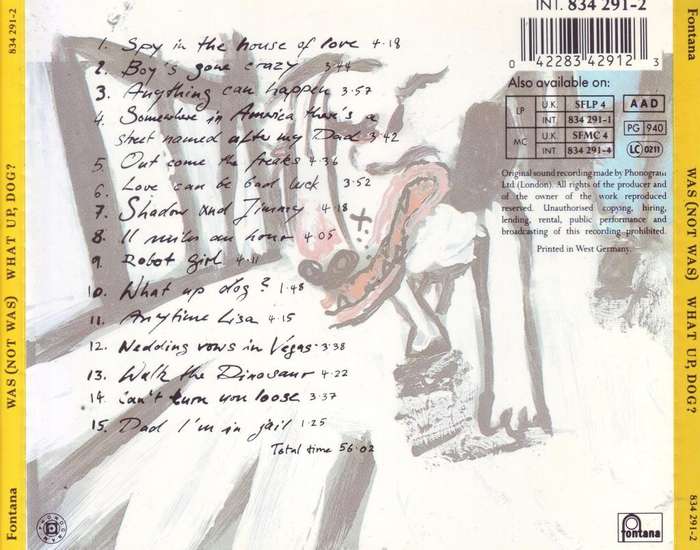 Fontana
WAS (NOT WAS) WHAT UP, DOG?
834 291-2
1. Spy in the house of love 4.18
2. Boy's gone crazy 3.44
3. Anything can happen 3.57
4. Somewhere in America there's a
street named after my Dad 3.42
5. Out come the freaks 4.36
6. Love can be bad luck 3.52
7. Shadow and Jimmy 4.18
8. 11 miles an hour 4.05
9. Robot girl 4.11
10. What up dog? 1.48
11. Anytime Lisa 4.15
12. Wedding vows in Vegas 3.38
13. Walk the Dinosaur 4.22
14. Can't turn you loose 3.37
15. Dad I'm in jail 1.25
Total time 56.02
INT. 834 291-2
0 42283 42912 3
Also available on:
LP U.K. SFLP 4
INT. 834 291-1
MC U.K. SFMC 4
INT. 834 291-4
AAD
PG 940
LC 0211
Original sound recording made by Phonogram
Ltd. (London). All rights of the producer and
of the owner of the work reproduced
reserved. Unauthorised copying, hiring,
lending, rental, public performance and
broadcasting of this recording prohibited.
Printed in West Germany.
PHONOGRAM
fontana
Fontana
WAS (NOT WAS) WHAT UP, DOG?
834 291-2